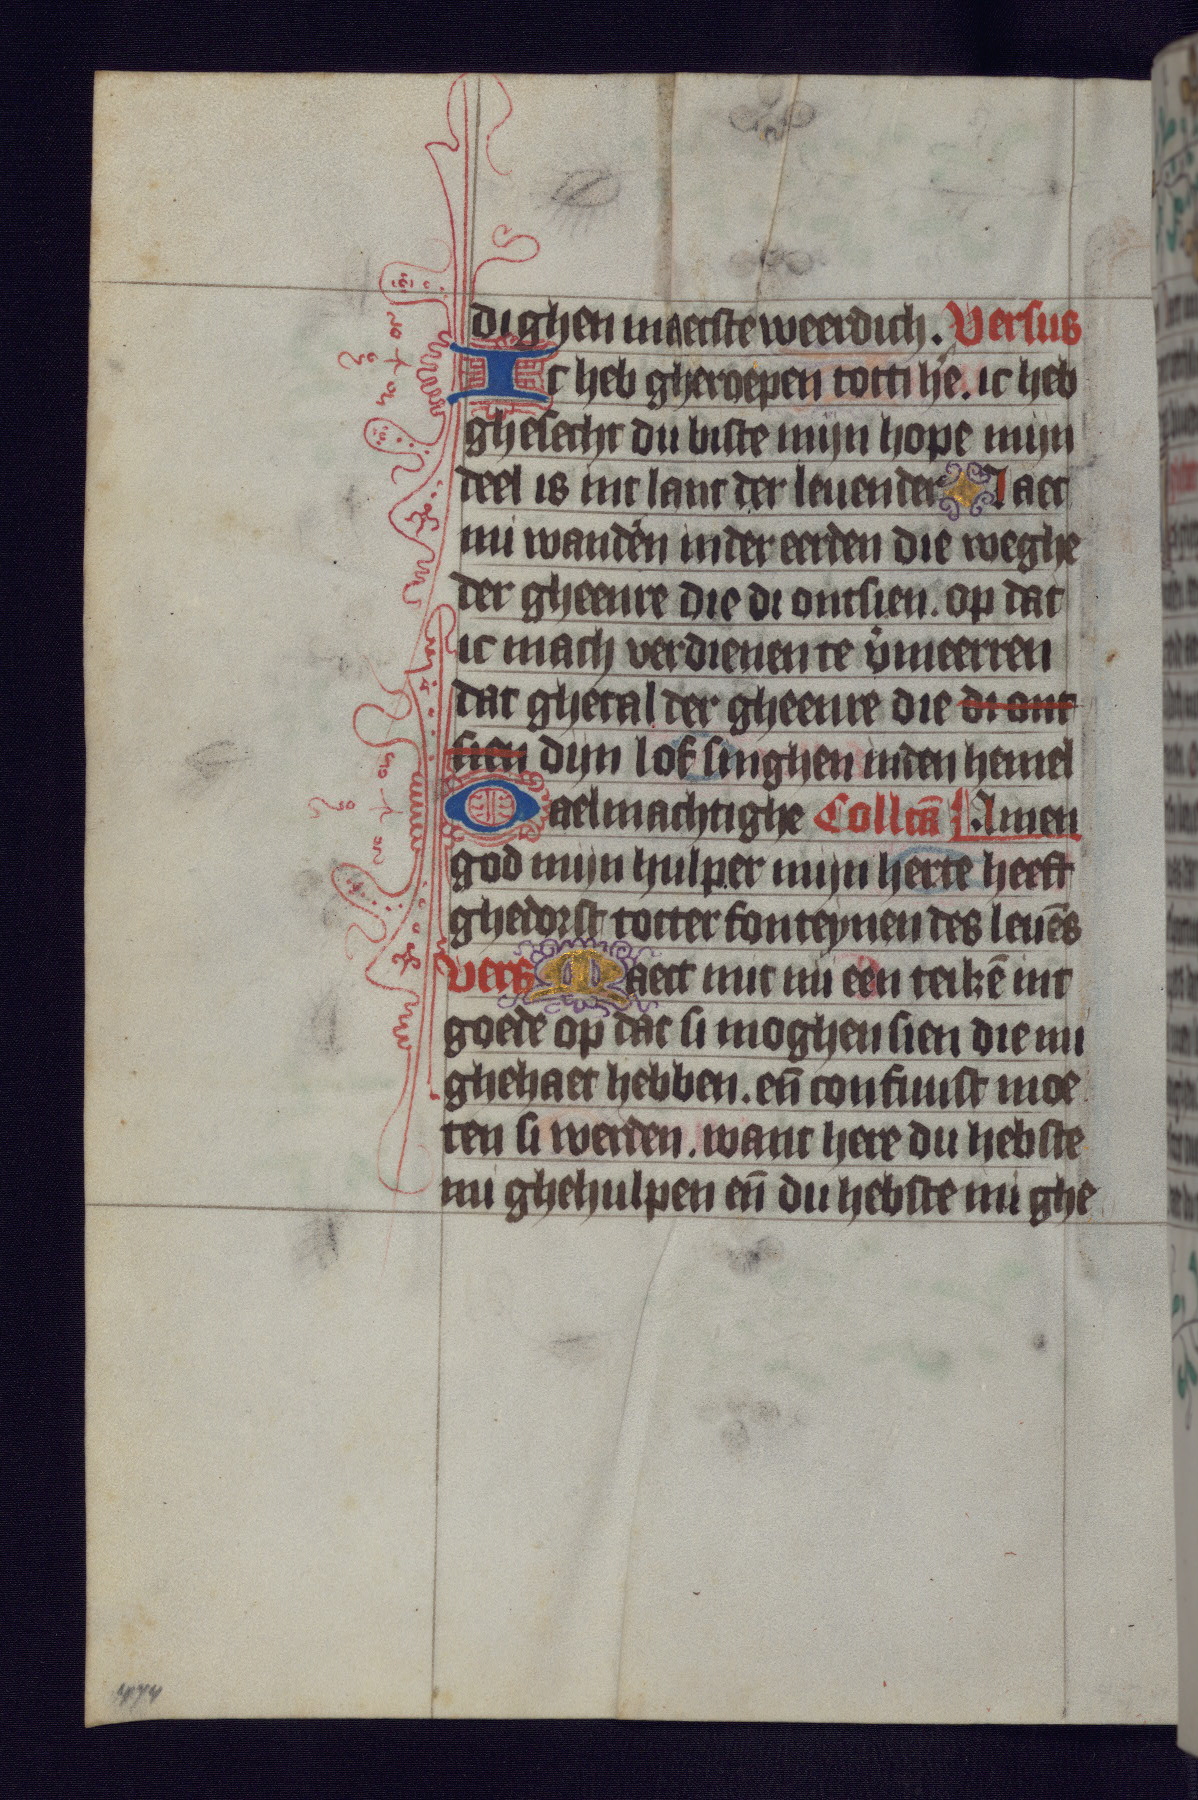 dighen maerste weerdich. Versus
Ic heb gheroepen totti hẽ. ic heb
ghesecht du biste mijn hope mijn
deel is int lant der leuender Laet
mi wandẽn inder eerden die weghe
der gheenre die di ontsien. op dat
ic mach verdienen te v̄meerren
dat ghetal der gheenre die di ont
sien dijn lof singhen inden hemel
O aelmachtighe Collcā Amen
god mijn hulper mijn herte heeft
ghedorst totter fonteynen des leuēs
Vers Maect mit mi een teikē int
goede op dat si moghen sien die mi
ghehaet hebben. en̄ confuust moe
ten si werden. want here du hebste
mi ghehulpen en̄ du hebste mi ghe